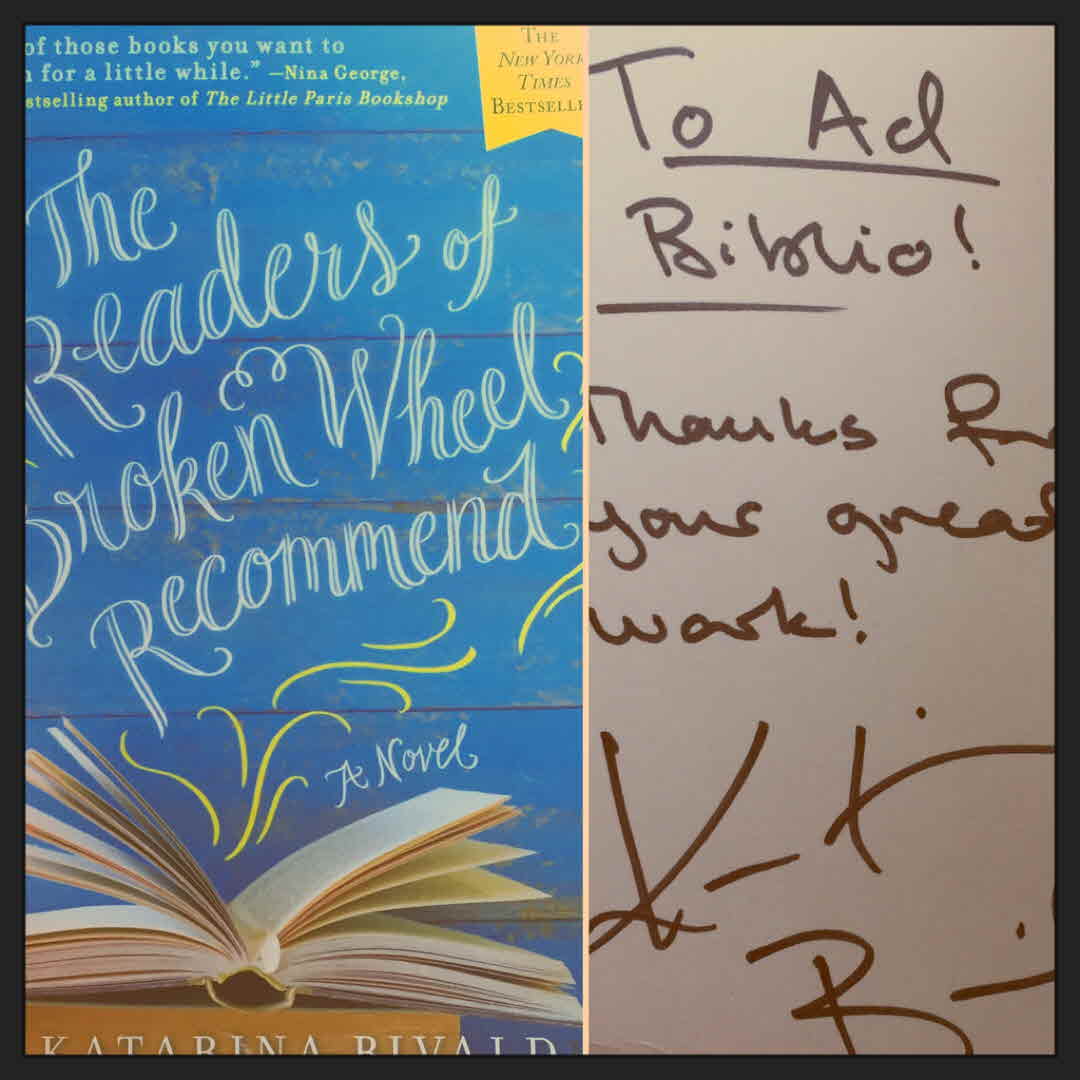 of those books you want to
for a little while.” —Nina George,
stselling author of The Little Paris Bookshop
THE
NEW YORK
TIMES
BESTSELLE
The
Readers of
Broken Wheel
Recommend
A Novel
KATARINA BIVALD
To Ad
Biblio!
Thanks for
your great
work!